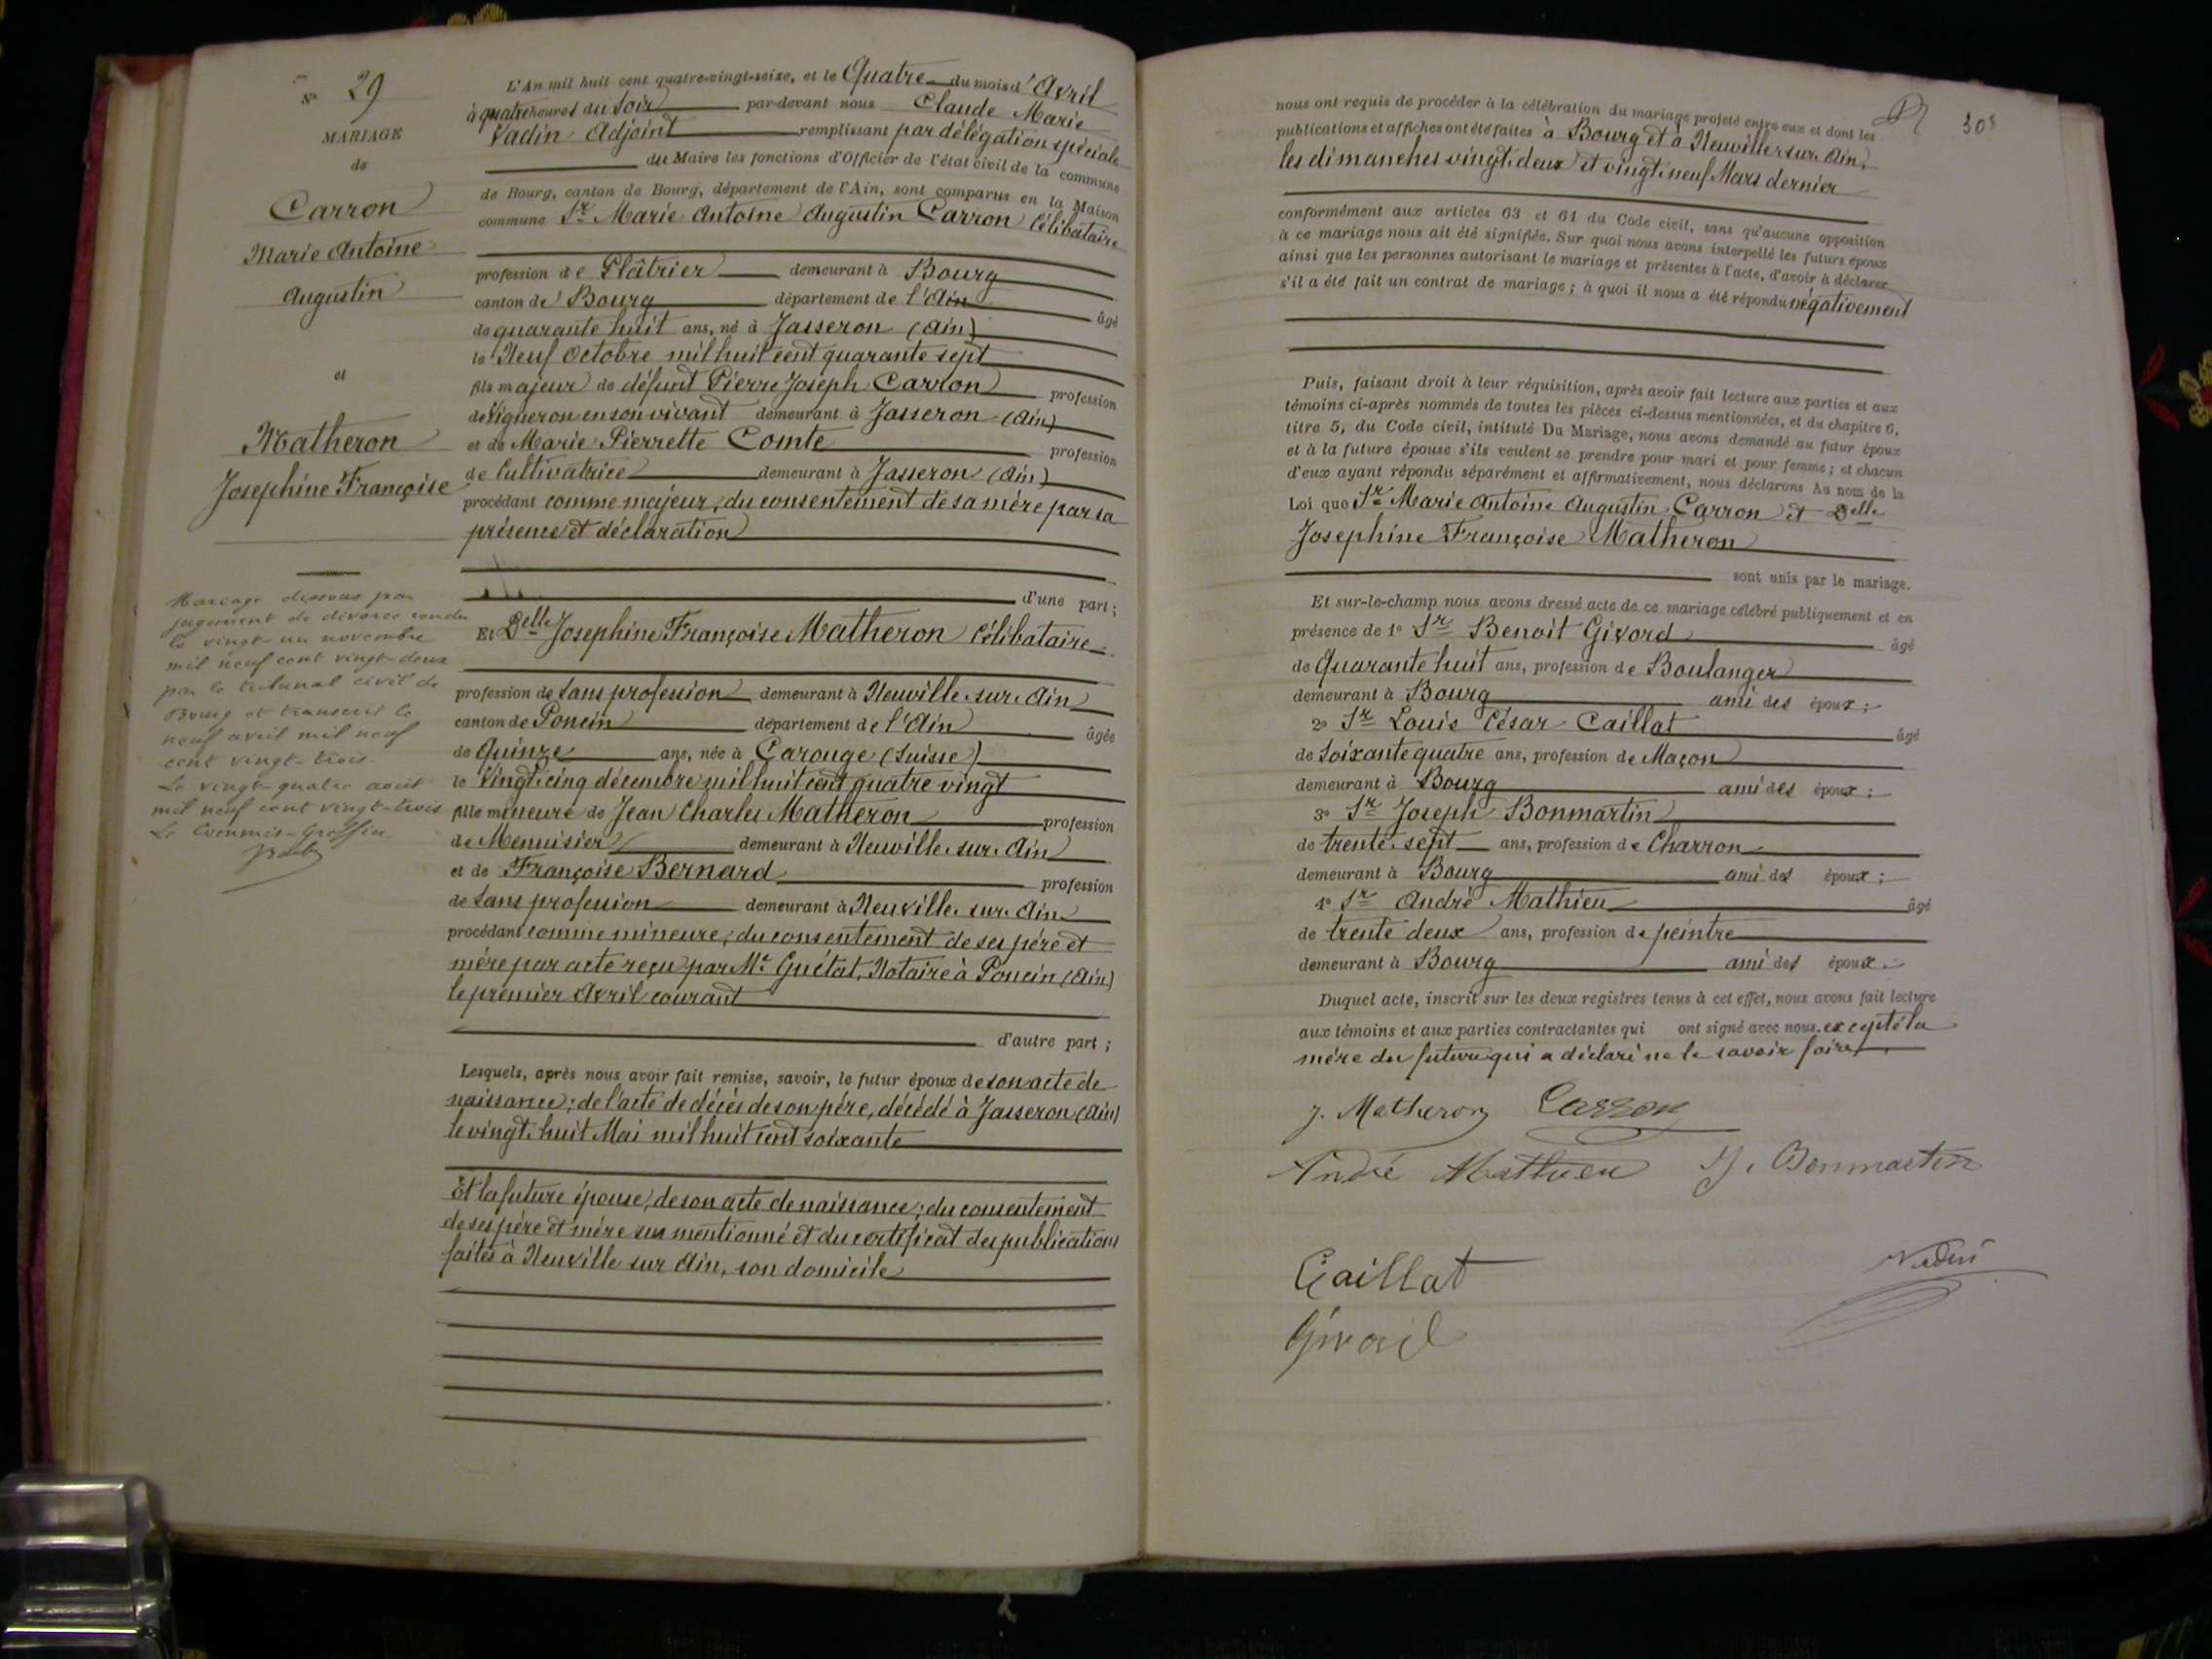 N° 29
MARIAGE
de
Carron
Marie Antoine
Augustin
et
Matheron
Josephine Françoise
Mariage dissous par
jugement de divorce rendu
le vingt-un novembre
mil neuf cent vingt-deux
par le tribunal civil de
Bourg et transcrit le
neuf avril mil neuf
cent vingt-trois.
Le vingt-quatre août
mil neuf cent vingt-trois
Le Commis-Greffier
L'An mil huit cent quatre-vingt-seize, et le Quatre du mois d'Avril
à quatre heures du Soir par-devant nous Claude Marie
Vadin Adjoint remplissant par délégation spéciale
du Maire les fonctions d'Officier de l'état civil de la commune
de Bourg, canton de Bourg, département de l'Ain, sont comparus en la Maison
commune Sr Marie Antoine Augustin Carron Célibataire
profession de Plâtrier demeurant à Bourg
canton de Bourg département de l'Ain âgé
de quarante huit ans, né à Jasseron (Ain)
le Neuf Octobre mil huit cent quarante sept
fils majeur de défunt Pierre Joseph Carron profession
de Vigneron en son vivant demeurant à Jasseron (Ain)
et de Marie Pierrette Comte profession
de Cultivatrice demeurant à Jasseron (Ain)
procédant comme majeur, du consentement de sa mère par sa
présence et déclaration
d'une part ;
Et Delle Josephine Françoise Matheron Célibataire
profession de Sans profession demeurant à Neuville-sur-Ain
canton de Poncin département de l'Ain âgée
de Quinze ans, née à Carouge (Suisse)
le Vingt-cinq décembre mil huit cent quatre vingt
fille mineure de Jean Charles Matheron profession
de Menuisier demeurant à Neuville-sur-Ain
et de Françoise Bernard profession
de Sans profession demeurant à Neuville-sur-Ain
procédant comme mineure, du consentement de ses père et
mère par acte reçu par Me Guétat, Notaire à Poncin (Ain)
le premier Avril courant
d'autre part ;
Lesquels, après nous avoir fait remise, savoir, le futur époux de son acte de
naissance ; de l'acte de décès de son père, décédé à Jasseron (Ain)
le vingt-huit Mai mil huit cent soixante
Et la future épouse, de son acte de naissance ; du consentement
de ses père et mère sus mentionné et du certificat des publications
faites à Neuville sur Ain, son domicile
308
nous ont requis de procéder à la célébration du mariage projeté entre eux et dont les
publications et affiches ont été faites à Bourg et à Neuville-sur-Ain,
les dimanches vingt-deux et vingt-neuf Mars dernier
conformément aux articles 63 et 64 du Code civil, sans qu'aucune opposition
à ce mariage nous ait été signifiée. Sur quoi nous avons interpellé les futurs époux
ainsi que les personnes autorisant le mariage et présentes à l'acte, d'avoir à déclarer
s'il a été fait un contrat de mariage ; à quoi il nous a été répondu négativement
Puis, faisant droit à leur réquisition, après avoir fait lecture aux parties et aux
témoins ci-après nommés de toutes les pièces ci-dessus mentionnées, et du chapitre 6,
titre 5, du Code civil, intitulé Du Mariage, nous avons demandé au futur époux
et à la future épouse s'ils veulent se prendre pour mari et pour femme ; et chacun
d'eux ayant répondu séparément et affirmativement, nous déclarons Au nom de la
Loi que Sr Marie Antoine Augustin Carron et Delle
Josephine Françoise Matheron
sont unis par le mariage.
Et sur-le-champ nous avons dressé acte de ce mariage célébré publiquement et en
présence de 1° Sr Benoit Givord âgé
de Quarante huit ans, profession de Boulanger
demeurant à Bourg ami des époux ;
2° Sr Louis César Caillat âgé
de Soixante quatre ans, profession de Maçon
demeurant à Bourg ami des époux ;
3° Sr Joseph Bonmartin
de trente-sept ans, profession de Charron
demeurant à Bourg ami des époux ;
4° Sr André Mathieu âgé
de trente deux ans, profession de peintre
demeurant à Bourg ami des époux.
Duquel acte, inscrit sur les deux registres tenus à cet effet, nous avons fait lecture
aux témoins et aux parties contractantes qui ont signé avec nous, excepté la
mère du futur qui a déclaré ne le savoir faire
J. Matheron Carron
André Mathieu J. Bonmartin
Caillat Vadin
Givord